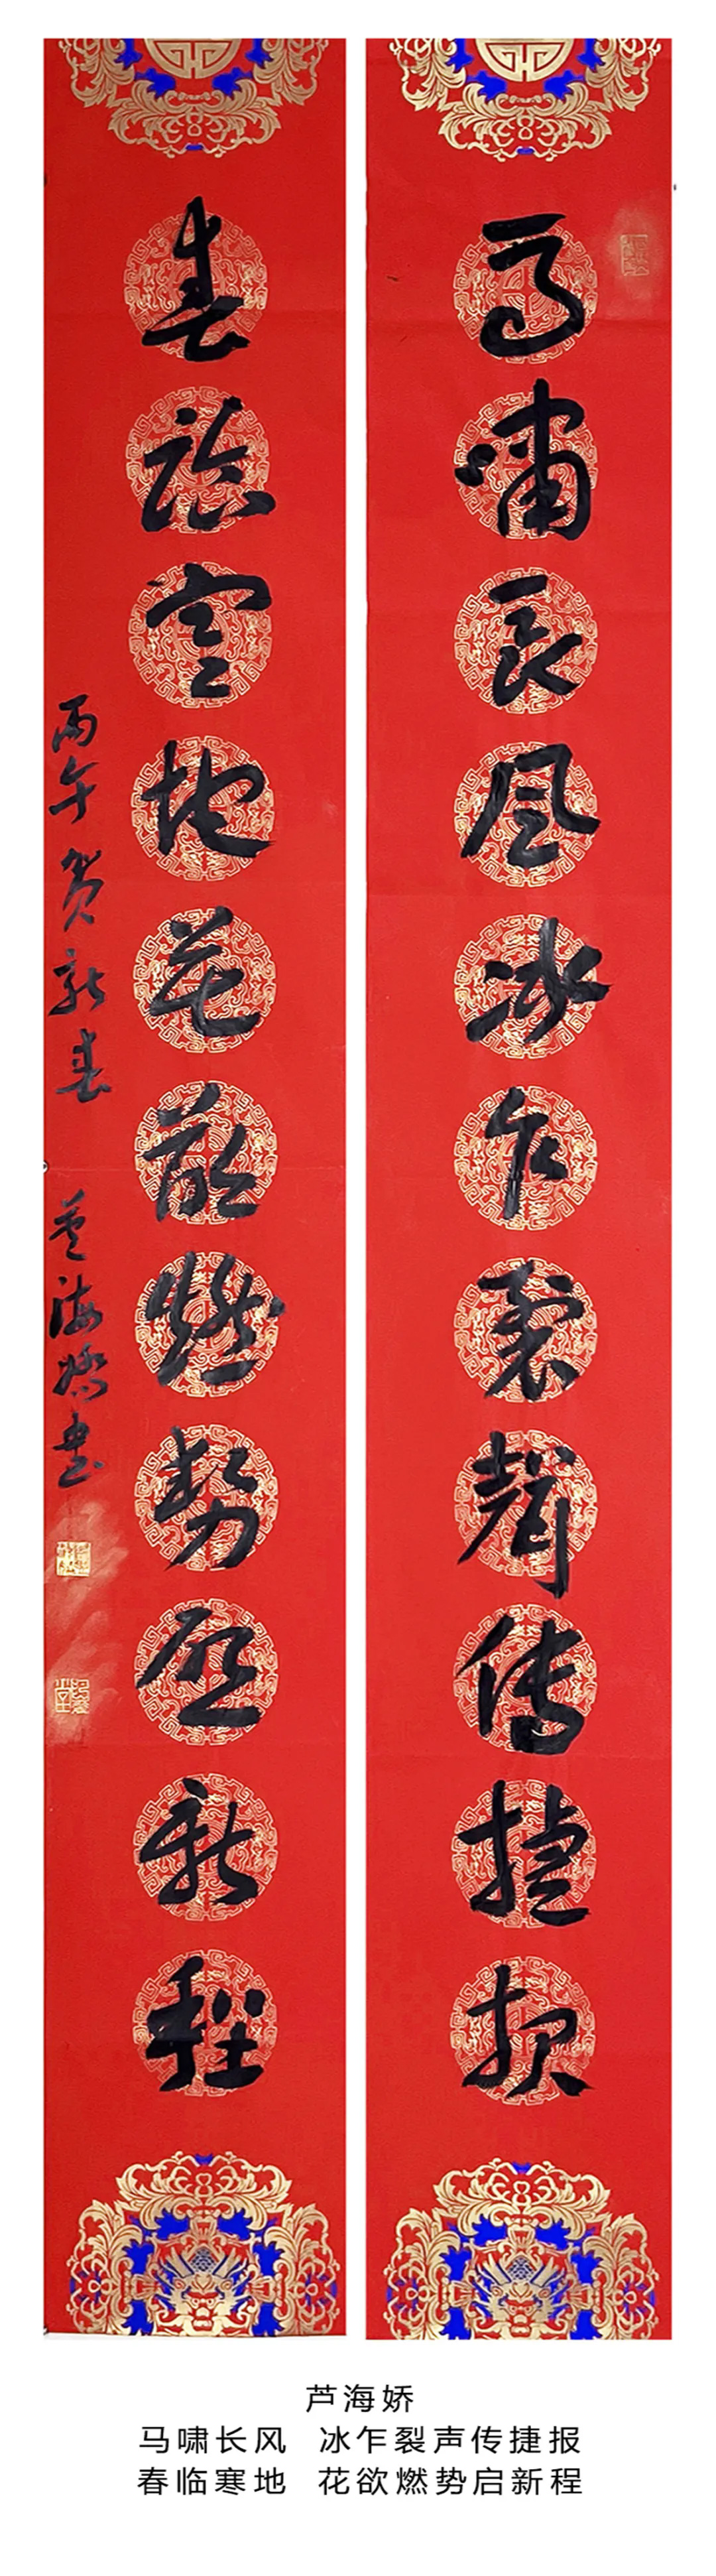 马啸长风冰乍裂声传捷报
春临寒地花欲燃势启新程
丙午贺新春 芦海娇书
芦海娇
马啸长风 冰乍裂声传捷报
春临寒地 花欲燃势启新程